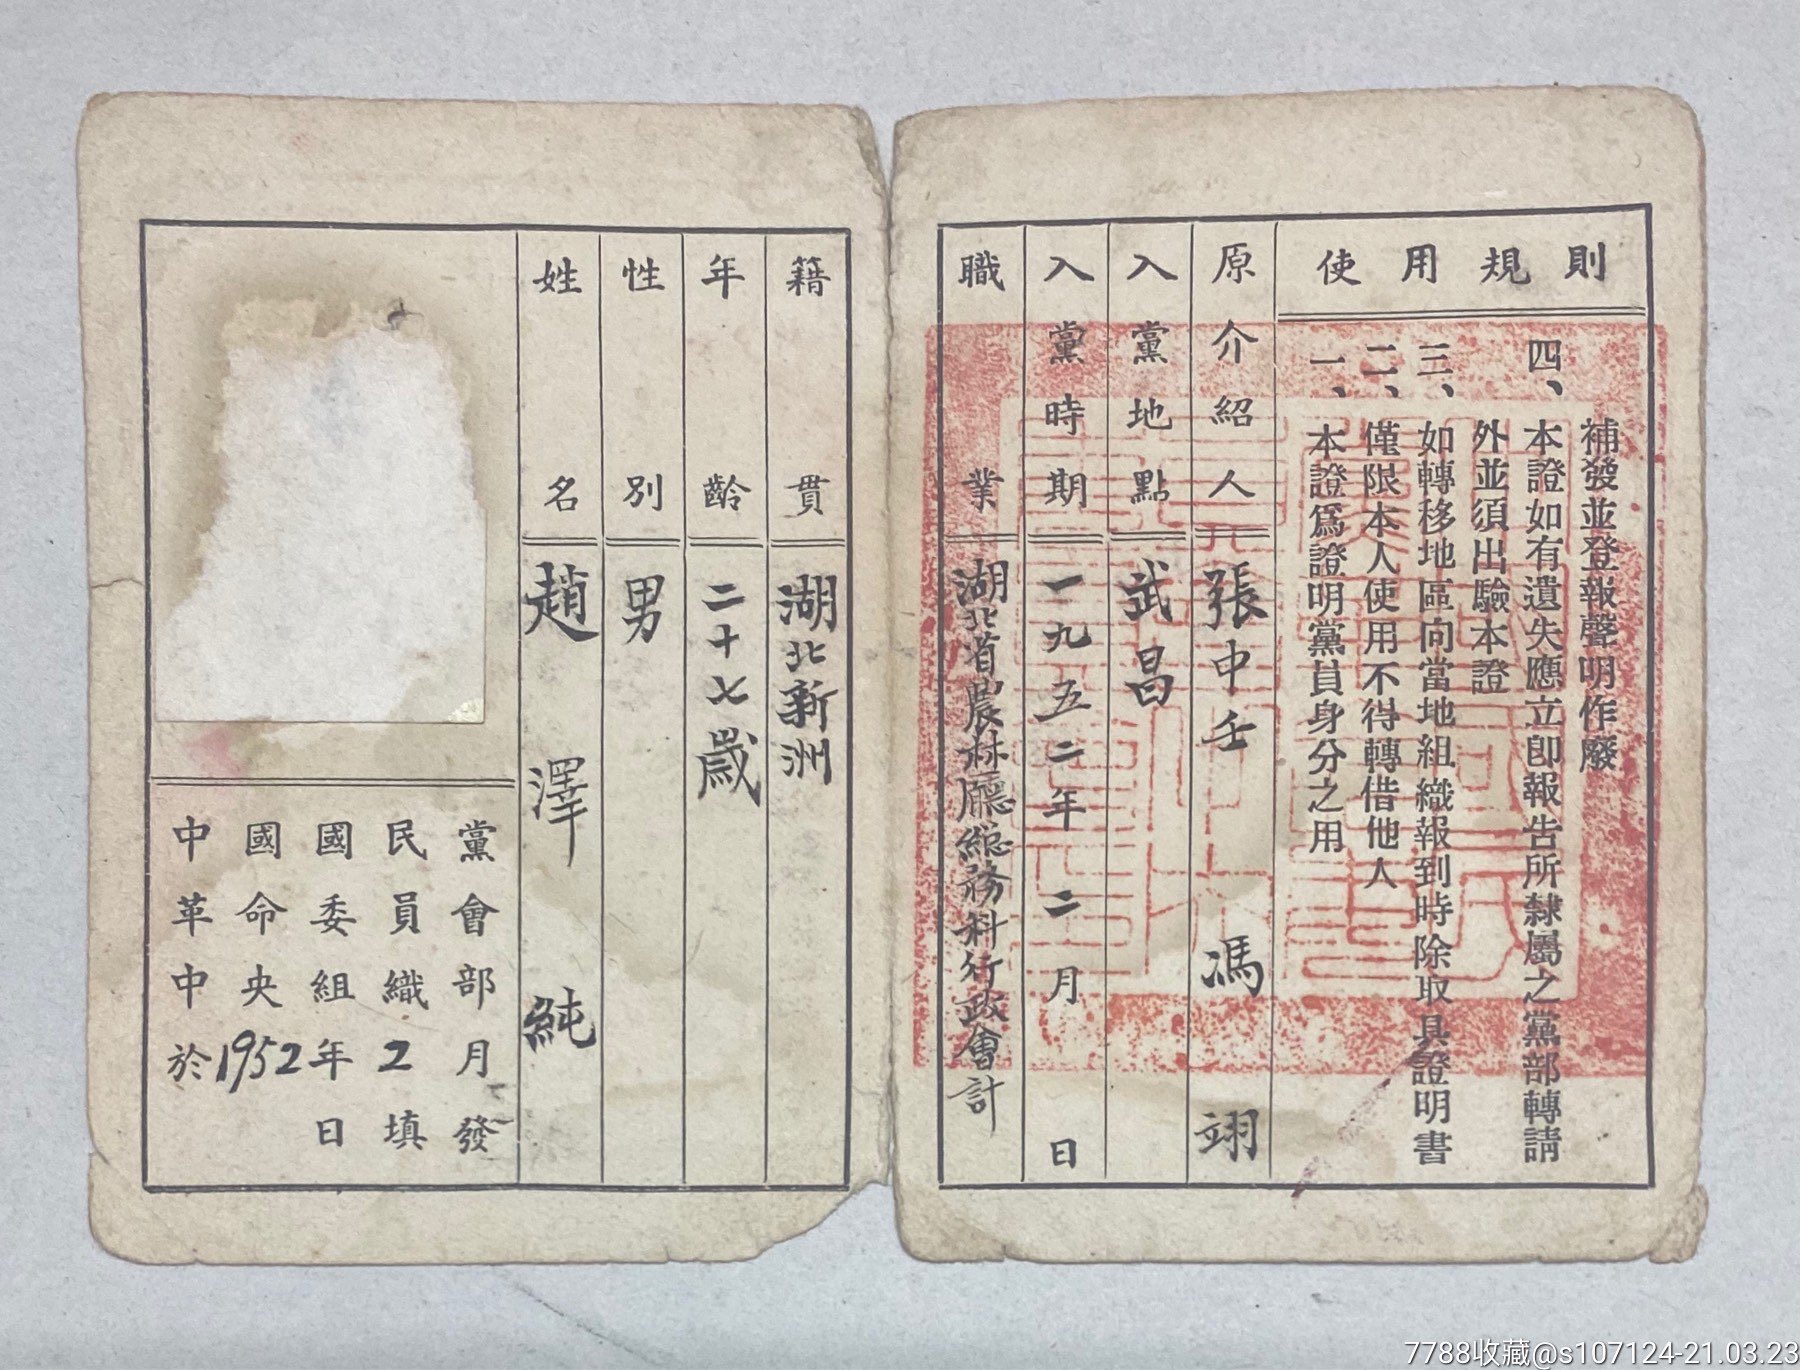 中國國民黨
革命委員會
中央組織部
於1952年2月
日填發
姓名 趙澤純
性別 男
年齡 二十七歲
籍貫 湖北新洲
職業 湖北省農林廳總務科行政會計
入黨時期 一九五二年二月 日
入黨地點 武昌
原介紹人 張中壬 馮翊
使用規則
一、本證爲證明黨員身分之用
二、僅限本人使用不得轉借他人
三、如轉移地區向當地組織報到時除取具證明書
外並須出驗本證
四、本證如有遺失應立卽報告所隸屬之黨部轉請
補發並登報聲明作廢
7788收藏@s107124-21.03.23